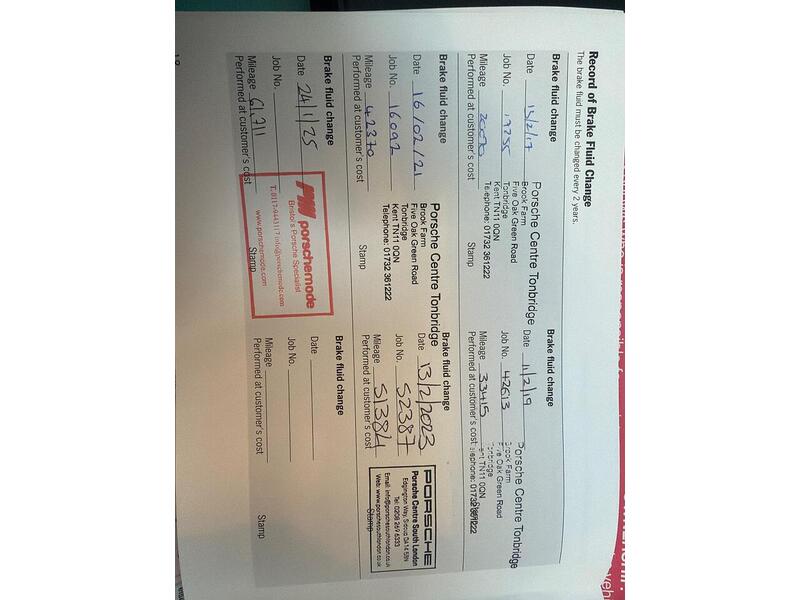 Record of Brake Fluid Change
The brake fluid must be changed every 2 years.
Brake fluid change
Date 13/2/17
Job No. 19255
Mileage 20070
Performed at customer's cost
Porsche Centre Tonbridge
Brook Farm
Five Oak Green Road
Tonbridge
Kent TN11 0QN
Telephone: 01732 361222
Stamp
Brake fluid change
Date 11/2/19
Job No. 42613
Mileage 33415
Performed at customer's cost
Porsche Centre Tonbridge
Brook Farm
Five Oak Green Road
Tonbridge
Kent TN11 0QN
Telephone: 01732 361222
Stamp
Brake fluid change
Date 16/02/21
Job No. 16092
Mileage 42370
Performed at customer's cost
Porsche Centre Tonbridge
Brook Farm
Five Oak Green Road
Tonbridge
Kent TN11 0QN
Telephone: 01732 361222
Stamp
Brake fluid change
Date 13/2/2023
Job No. 52387
Mileage 51384
Performed at customer's cost
PORSCHE
Porsche Centre South London
Edgington Way, Sidcup DA14 5BN
Tel: 0208 269 6333
Email: info@porschesouthlondon.co.uk
Web: www.porschesouthlondon.co.uk
Stamp
Brake fluid change
Date 24/1/25
Job No.
Mileage 61,711
Performed at customer's cost
porschemode
Bristol's Porsche Specialist
T. 0117 9443117 info@porschemode.com
www.porschemode.com
Stamp
Brake fluid change
Date
Job No.
Mileage
Performed at customer's cost
Stamp